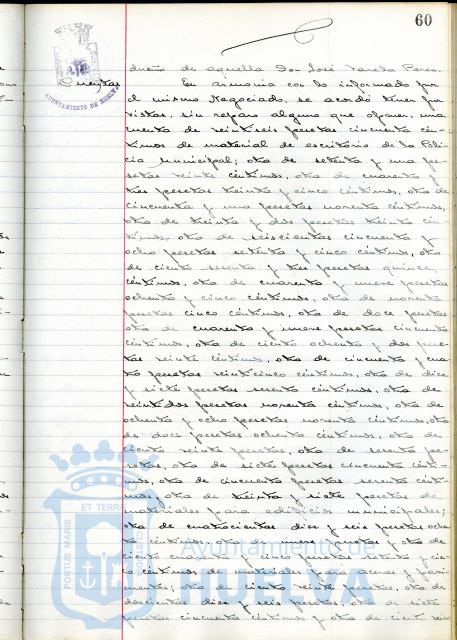 60
AYUNTAMIENTO DE HUELVA
dueño de aquella Don José Varela Perez.
Cuentas En armonia con lo informado por
el mismo Negociado, se acordó tener por
vistas, sin reparo alguno que oponer, una
cuenta de veintiseis pesetas cincuenta cén-
timos de material de escritorio de la Poli-
cia Municipal; otra de setenta y una pe-
setas veinte céntimos, otra de cuarenta y
tres pesetas treinta y cinco céntimos, otra de
cincuenta y una pesetas noventa céntimos,
otra de treinta y dos pesetas treinta cén-
timos, otra de seiscientas cincuenta y
ocho pesetas setenta y cinco céntimos, otra
de ciento sesenta y tres pesetas quince
céntimos, otra de cuarenta y nueve pesetas
ochenta y cinco céntimos, otra de noventa
pesetas cinco céntimos, otra de doce pesetas
otra de cuarenta y nueve pesetas cincuenta
céntimos, otra de ciento ochenta y dos pese-
tas veinte céntimos, otra de cincuenta y cua-
tro pesetas veinticinco céntimos, otra de diez
y siete pesetas sesenta céntimos, otra de
veintidos pesetas noventa céntimos, otra de
ochenta y ocho pesetas noventa céntimos, otra
de doce pesetas ochenta céntimos, otra de
ciento veinte pesetas, otra de sesenta pe-
setas, otra de siete pesetas cincuenta cénti-
mos, otra de cincuenta pesetas sesenta cénti-
mos, otra de treinta y siete pesetas de
materiales para edificios municipales;
otra de cuatrocientas diez y seis pesetas ochen-
ta céntimos, otra de nueve pesetas y otra de
ciento cuarenta y cinco pesetas
céntimos de materiales para aceras y pavi-
mentos; otra de ciento veinte pesetas, otra de
doscientas diez y seis pesetas, otra de siete
pesetas cincuenta céntimos y otra de cient seis
PORTUS MARIS ET TERRAE
Ayuntamiento de
HUELVA